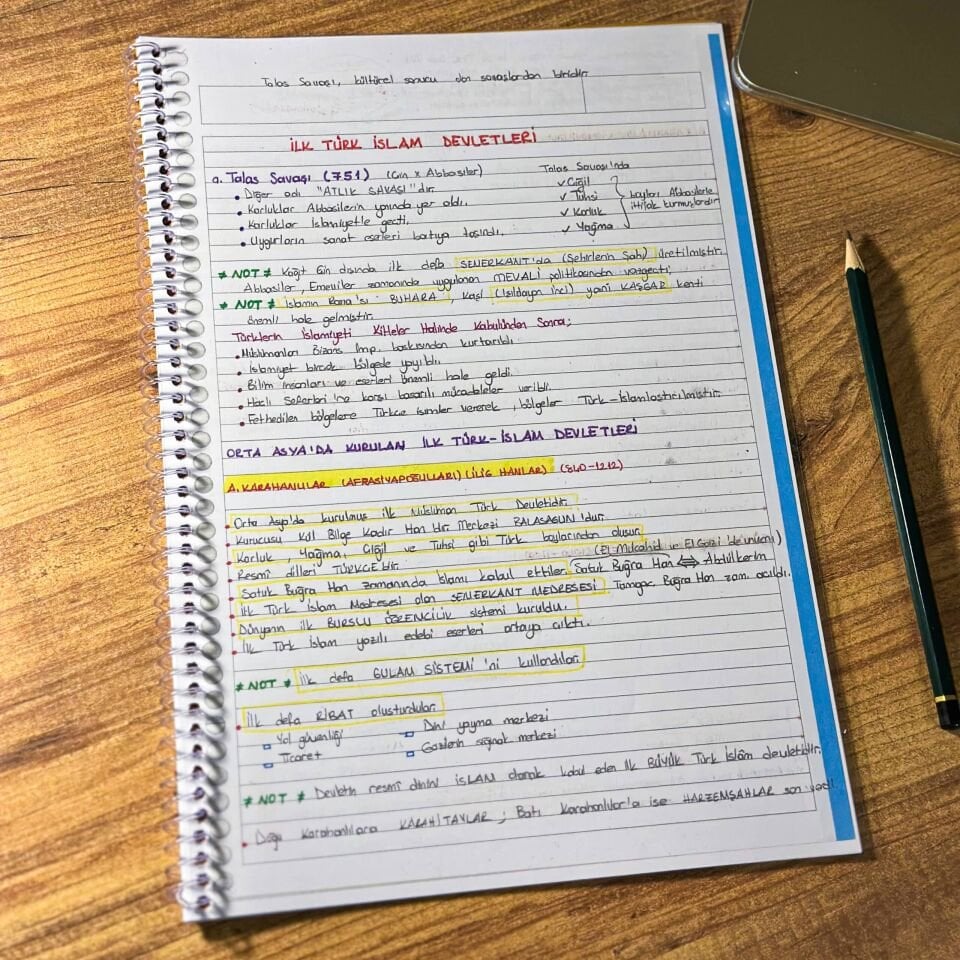 Talas Savaşı, kültürel sonucu olan savaşlardan biridir.
İLK TÜRK İSLAM DEVLETLERİ
a. Talas Savaşı (751) (Çin x Abbasiler)
• Diğer adı "ATLIK SAVAŞI"dır.
• Karluklar Abbasilerin yanında yer aldı.
• Karluklar İslamiyet'e geçti.
• Uygurların sanat eserleri batıya taşındı.
Talas Savaşı'nda
✓ Çiğil
✓ Tuhsi
✓ Karluk
✓ Yağma
boyları Abbasilerle
ittifak kurmuşlardır
* NOT * Kağıt Çin dışında ilk defa SEMERKANT'da (Şehirlerin Şahı) üretilmiştir.
Abbasiler, Emeviler zamanında uygulanan MEVALİ politikasından vazgeçti.
* NOT * İslamın Roma'sı BUHARA, Kaşi (Işıldayan İnci) yani KAŞGAR kenti
önemli hale gelmiştir.
Türklerin İslamiyeti Kitleler Halinde Kabulünden Sonra;
• Müslümanları Bizans İmp. baskısından kurtarıldı.
• İslamiyet birçok bölgede yayıldı.
• Bilim insanları ve eserleri önemli hale geldi.
• Haçlı Seferleri'ne karşı başarılı mücadeleler verildi.
• Fethedilen bölgelere Türkçe isimler vererek, bölgeler Türk-İslamlaştırılmıştır.
ORTA ASYA'DA KURULAN İLK TÜRK-İSLAM DEVLETLERİ
A. KARAHANLILAR (AFRASİYAPOĞULLARI) (İLİG HANLAR) (840-1212)
• Orta Asya'da kurulmuş ilk Müslüman Türk Devletidir.
Kurucusu Kül Bilge Kadir Han'dır. Merkezi BALASAGUN'dur.
• Karluk, Yağma, Çiğil ve Tuhsi gibi Türk boylarından oluşur.
• Resmî dilleri TÜRKÇE'dir. (El Mücahid ve El Gazi 'de ünvanı)
• Satuk Buğra Han zamanında İslamı kabul ettiler. Satuk Buğra Han ⟺ Abdülkerim
• İlk Türk İslam Medresesi olan SEMERKANT MEDRESESİ Tamgaç Buğra Han zam. açıldı.
• Dünyanın ilk BURSLU ÖĞRENCİLİK sistemi kuruldu.
• İlk Türk İslam yazılı edebi eserleri ortaya çıktı.
* NOT * İlk defa GULAM SİSTEMİ'ni kullandılar.
• İlk defa RİBAT oluşturdular.
Yol güvenliği
Dini yayma merkezi
Ticaret
Gazilerin sığınak merkezi
* NOT * Devletin resmî dinini İSLAM olarak kabul eden ilk BÜYÜK Türk İslâm devletidir.
• Doğu Karahanlılara KARAHİTAYLAR; Batı Karahanlılar'a ise HARZEMŞAHLAR son verdi.